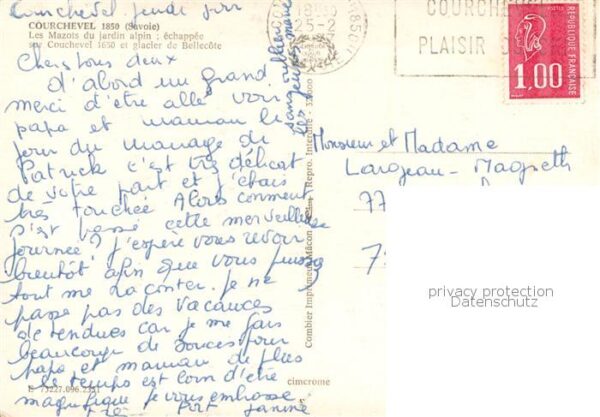 Courchevel jeudi soir
COURCHEVEL 1850 (Savoie)
Les Mazots du jardin alpin ; échappée
sur Couchevel 1650 et glacier de Bellecôte
Chers tous deux
d'abord un grand
merci d'être allé voir
papa et maman le
jour du mariage de
Patrick c'est très délicat
de votre part et j'étais
très touchée Alors comment
s'est passé cette merveilleuse
journée? j'espère vous revoir
bientôt afin que vous puissiez
tout me raconter. je ne
passe pas des vacances
détendues car je me fais
beaucoup de soucis pour
papa et maman de plus
le temps est loin d'être
E 73227.096.2351
magnifique je vous embrasse
fort Janine
cimcrome
Combier Imprimeur Mâcon
Repro. Interdite
COURCHEVEL
PLAISIR
1,00
REPUBLIQUE FRANÇAISE
Monsieur et Madame
Largeau - Magneth
77
privacy protection
Datenschutz